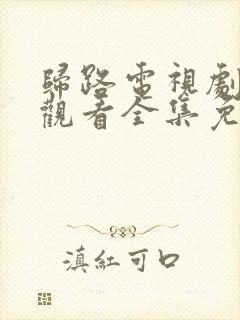 歸路電視劇
觀看全集免
滇紅可口